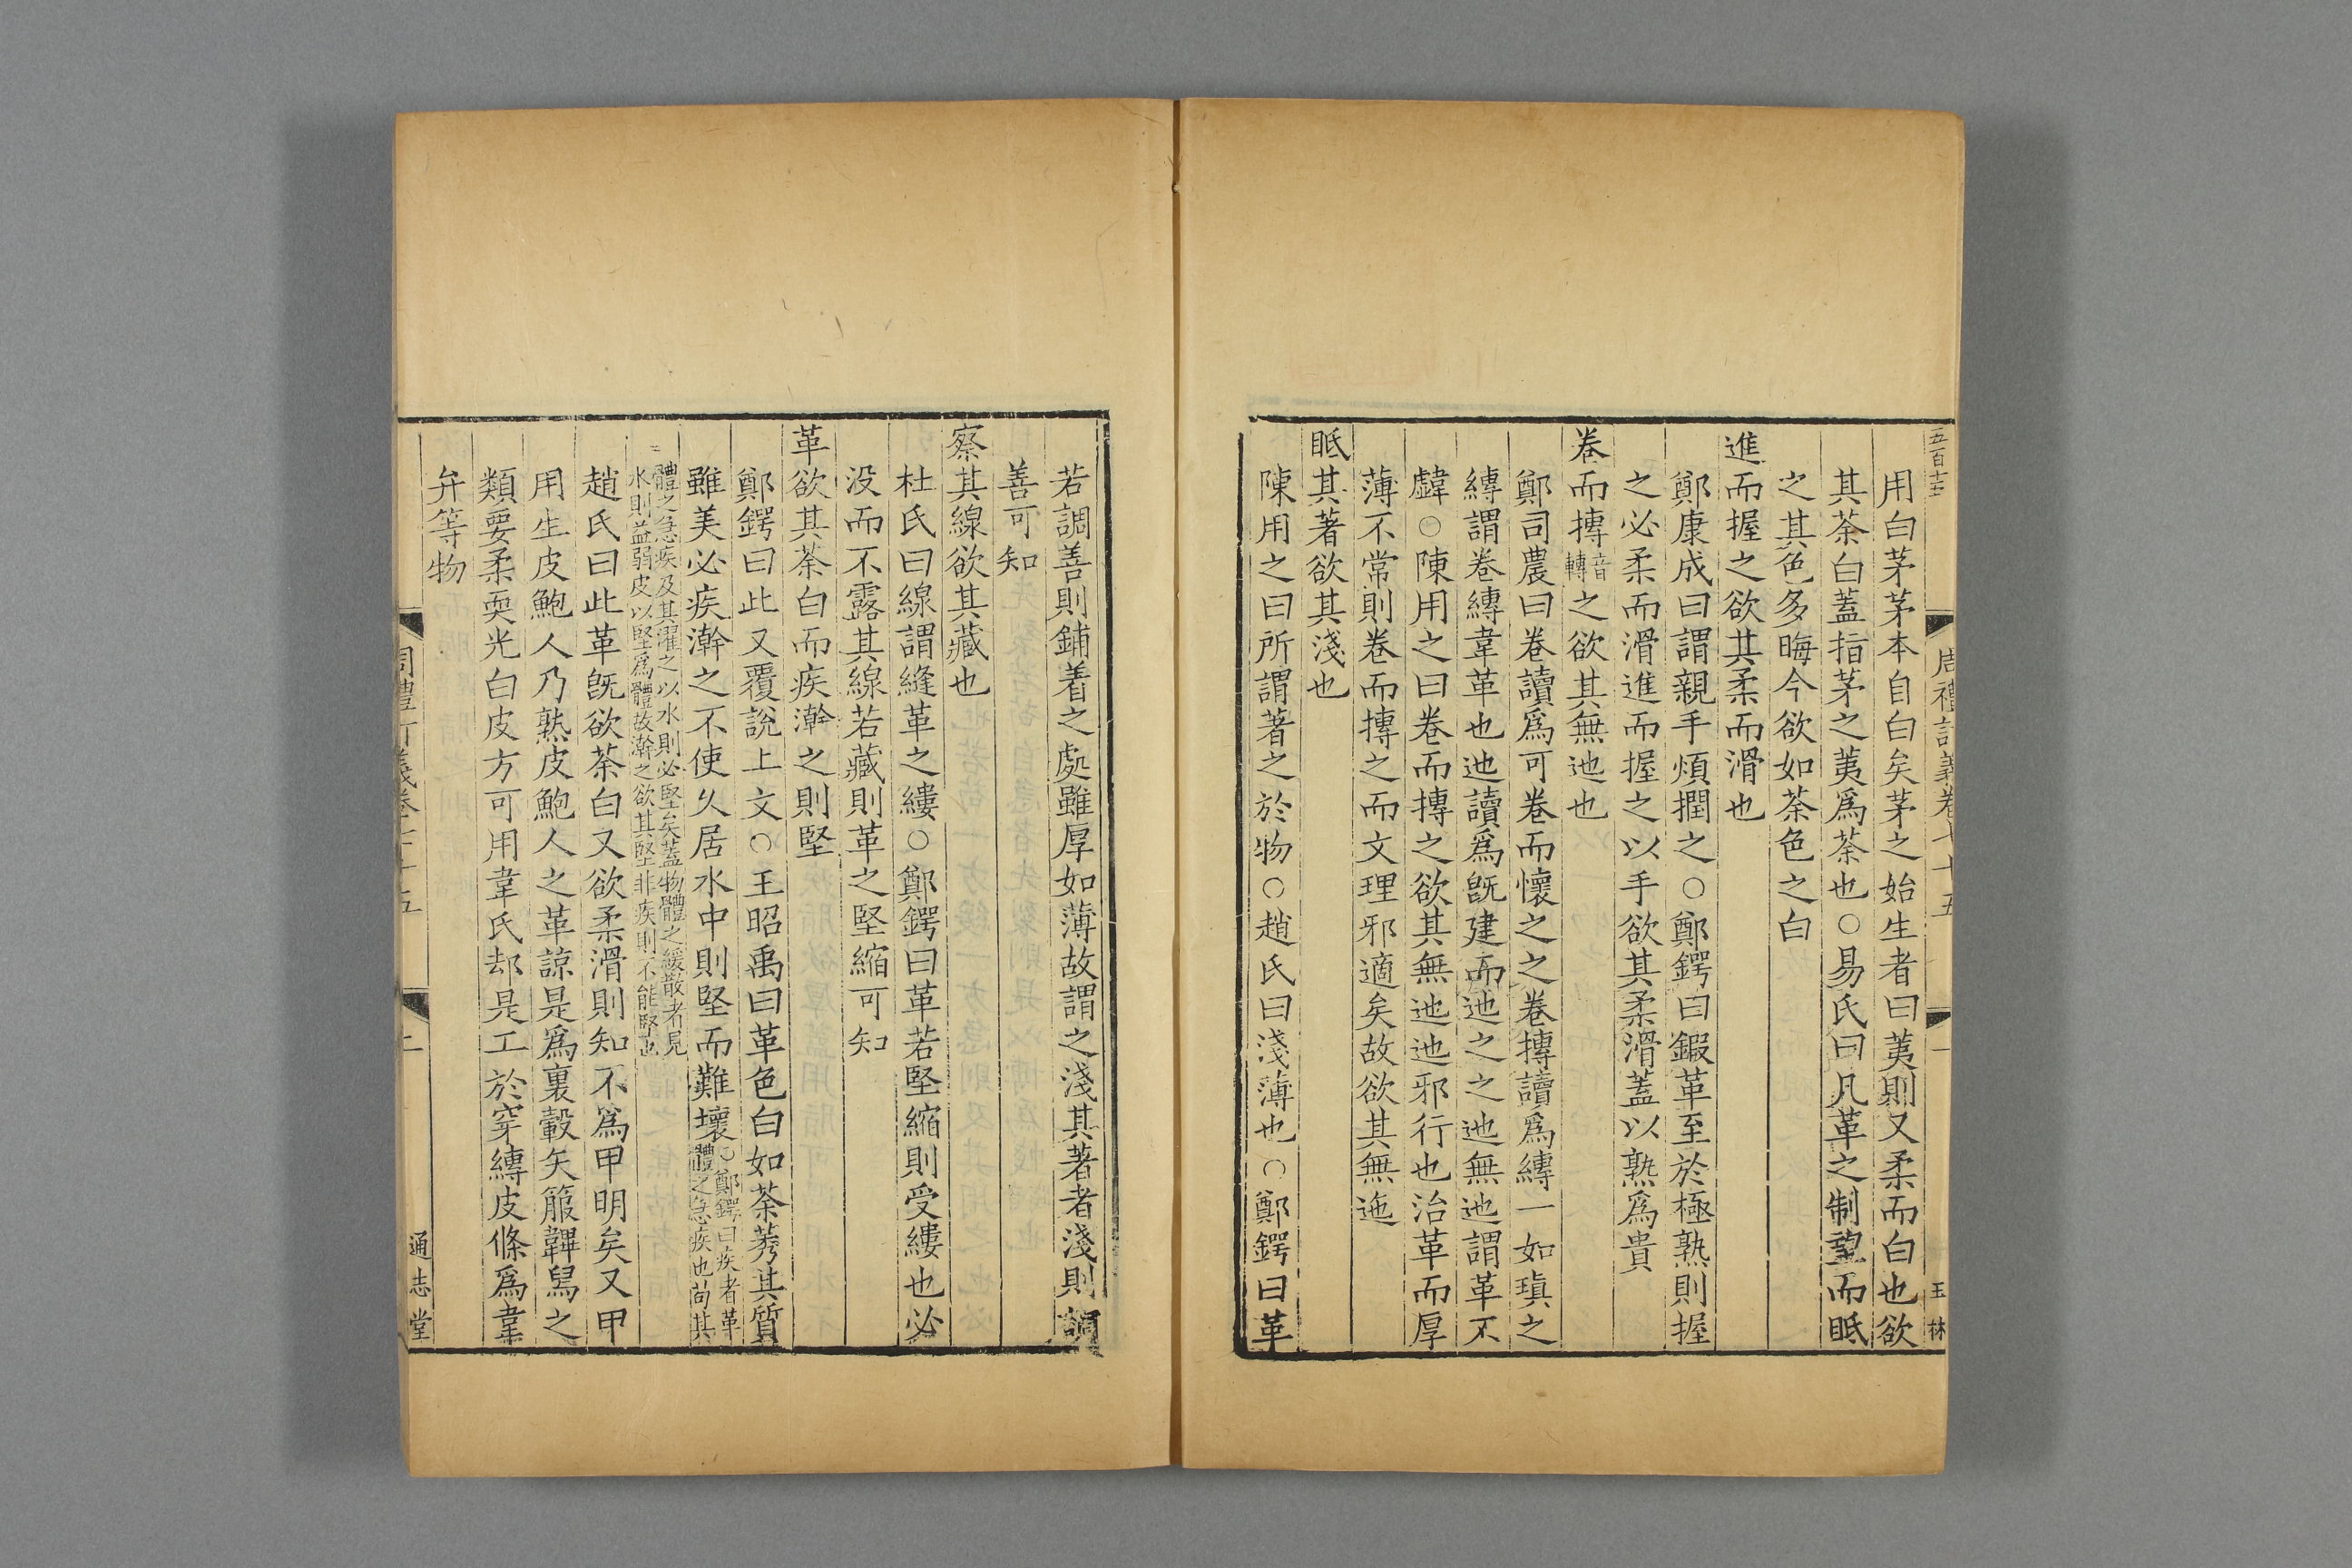 用白茅茅本自白矣茅之始生者曰荑則又柔而白也欲
其荼白蓋指茅之荑爲荼也○易氏曰凡革之制望而眡
之其色多晦今欲如荼色之白
進而握之欲其柔而滑也
鄭康成曰謂親手煩撋之○鄭鍔曰鍜革至於極熟則握
之必柔而滑進而握之以手欲其柔滑蓋以熟爲貴
卷而摶音轉之欲其無迆也
鄭司農曰卷讀爲可卷而懷之之卷摶讀爲縳一如瑱之
縳謂卷縳韋革也迆讀爲旣建而迆之之迆無迆謂革不
䪍○陳用之曰卷而摶之欲其無迆迆邪行也治革而厚
薄不常則卷而摶之而文理邪適矣故欲其無迤
眡其著欲其淺也
陳用之曰所謂著之於物○趙氏曰淺薄也○鄭鍔曰革
若調善則鋪着之處雖厚如薄故謂之淺其著者淺則調
善可知
察其線欲其藏也
杜氏曰線謂縫革之縷○鄭鍔曰革若堅縮則受縷也必
没而不露其線若藏則革之堅縮可知
革欲其荼白而疾澣之則堅
鄭鍔曰此又覆說上文○王昭禹曰革色白如荼莠其質
雖美必疾澣之不使久居水中則堅而難壞○鄭鍔曰疾者革
體之急疾也苟其
體之急疾及其濯之以水則必堅矣蓋物體之緩散者見
水則益弱皮以堅爲體故澣之欲其堅非疾則不能堅也
趙氏曰此革旣欲荼白又欲柔滑則知不爲甲明矣又甲
用生皮鮑人乃熟皮鮑人之革諒是爲裏轂矢箙韠舄之
類要柔耎光白皮方可用韋氏却是工於穿縳皮條爲韋
弁等物
周禮訂義卷七十五
王林
通志堂